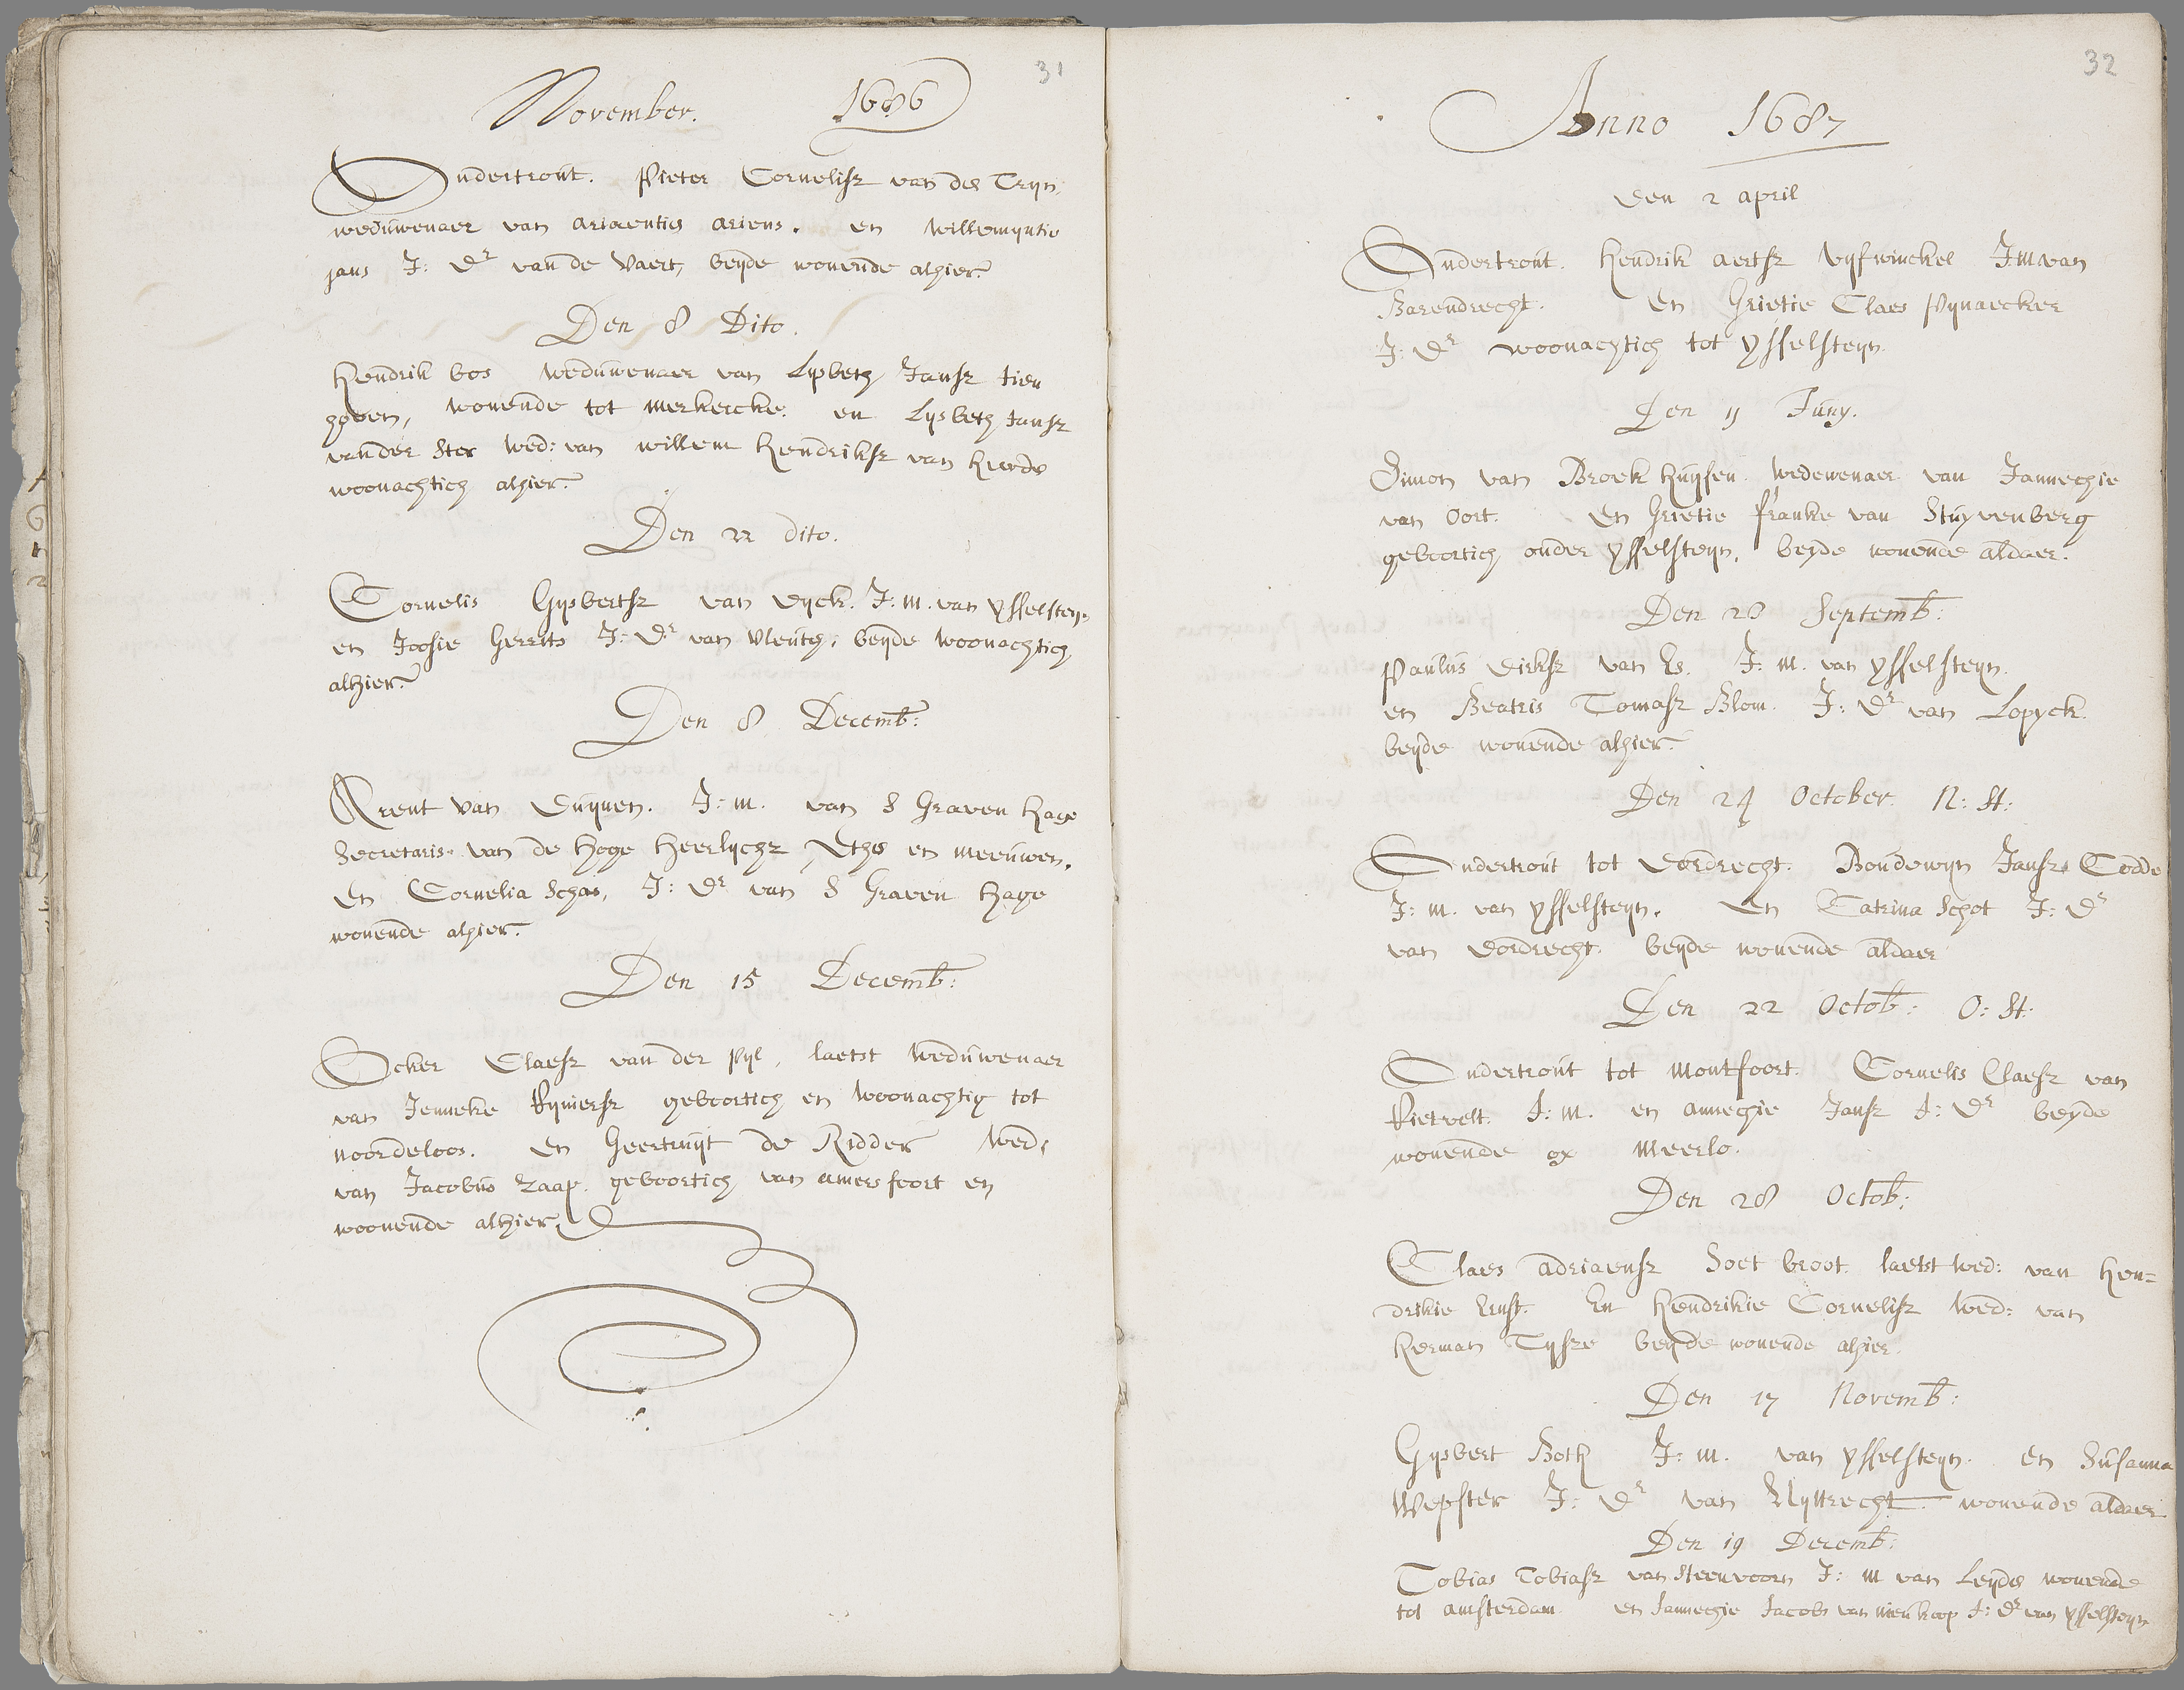 31
November. 1686
Ondertrout. Pieter Cornelisz van der Tryn
weduwenaer van Ariaenties Ariens. en Willemyntie
jans J: Dr van de Vaert, beyde wonende alhier.
Den 8 Dito.
Hendrik bos weduwenaer van Lysbeth Jansz tien
hoven, wonende tot Merkercke. en Lysbeth Jansz
vander Ster wed: van willem Hendriksz van
woonachtich alhier.
Den 22 dito.
Cornelis Gysbertsz van Dyck. J: m. van ysselsteyn
en Josie Gerrits J: Dr van Vleuten, beyde woonachtich
alhier.
Den 8 Decemb:
Arent van Duynen. J: m. van S Graven Hage
Secretaris van de Hoge Heerlycht Ethe en Meeuwen.
En Cornelia Schas, J: Dr van S Graven Hage
wonende alhier.
Den 15 Decemb:
Ocker Claesz van der Pyl, laetst weduwenaer
van Jenneke Ryniersz geboortich en woonachtig tot
noordeloos. En Geertruyt de Ridder Wed:
van Jacobus Raap. geboortich van amersfoort en
woonende alhier.
32
Anno 1687
Den 2 april
Ondertrout. Hendrik aertsz Vyfwinckel J.m van
Barendrecht. En Grietie Claes Pynaecker
J: Dr woonachtich tot ysselsteyn.
Den 11 Juny.
Simon van Broek huysen. Wedewenaer van Jannechie
van Oort. En Grietie franke van Stuyvenberg
geboortich onder ysselsteyn, beyde wonende aldaer.
Den 28 Septemb:
Paulus Dirksz van Es. J: m. van ysselsteyn.
en Beatris Tomasz Blom. J: Dr van Lopyck.
beyde wonende alhier.
Den 24 October N: St:
Ondertrout tot Dordrecht. Boudewyn Jansz Codde
J: m. van ysselsteyn. En Catrina Schot J: Dr
van Dordrecht. beyde wonende aldaer
Den 22 Octob: O: St:
Ondertrout tot Montfoort. Cornelis Claesz van
Rietvelt. J: m. en annechie Jansz J: Dr beyde
wonende op Meerlo.
Den 28 Octob:
Claes adriaensz Soet broot. laetst wed: van Hen=
drikie Ernst. En Hendrikie Cornelisz Wed: van
Herman Tysze beyde wonende alhier.
Den 17 Novemb:
Gysbert Both J: m. van ysselsteyn. en Susanna
Wepster J: Dr van Uyttrecht wonende aldaer
Den 19 Decemb:
Tobias Tobiasz van Steenvoorn J: m van Leyde wonende
tot amsterdam en Jannechie Jacobs van Nieukoop J: Dr van ysselsteyn